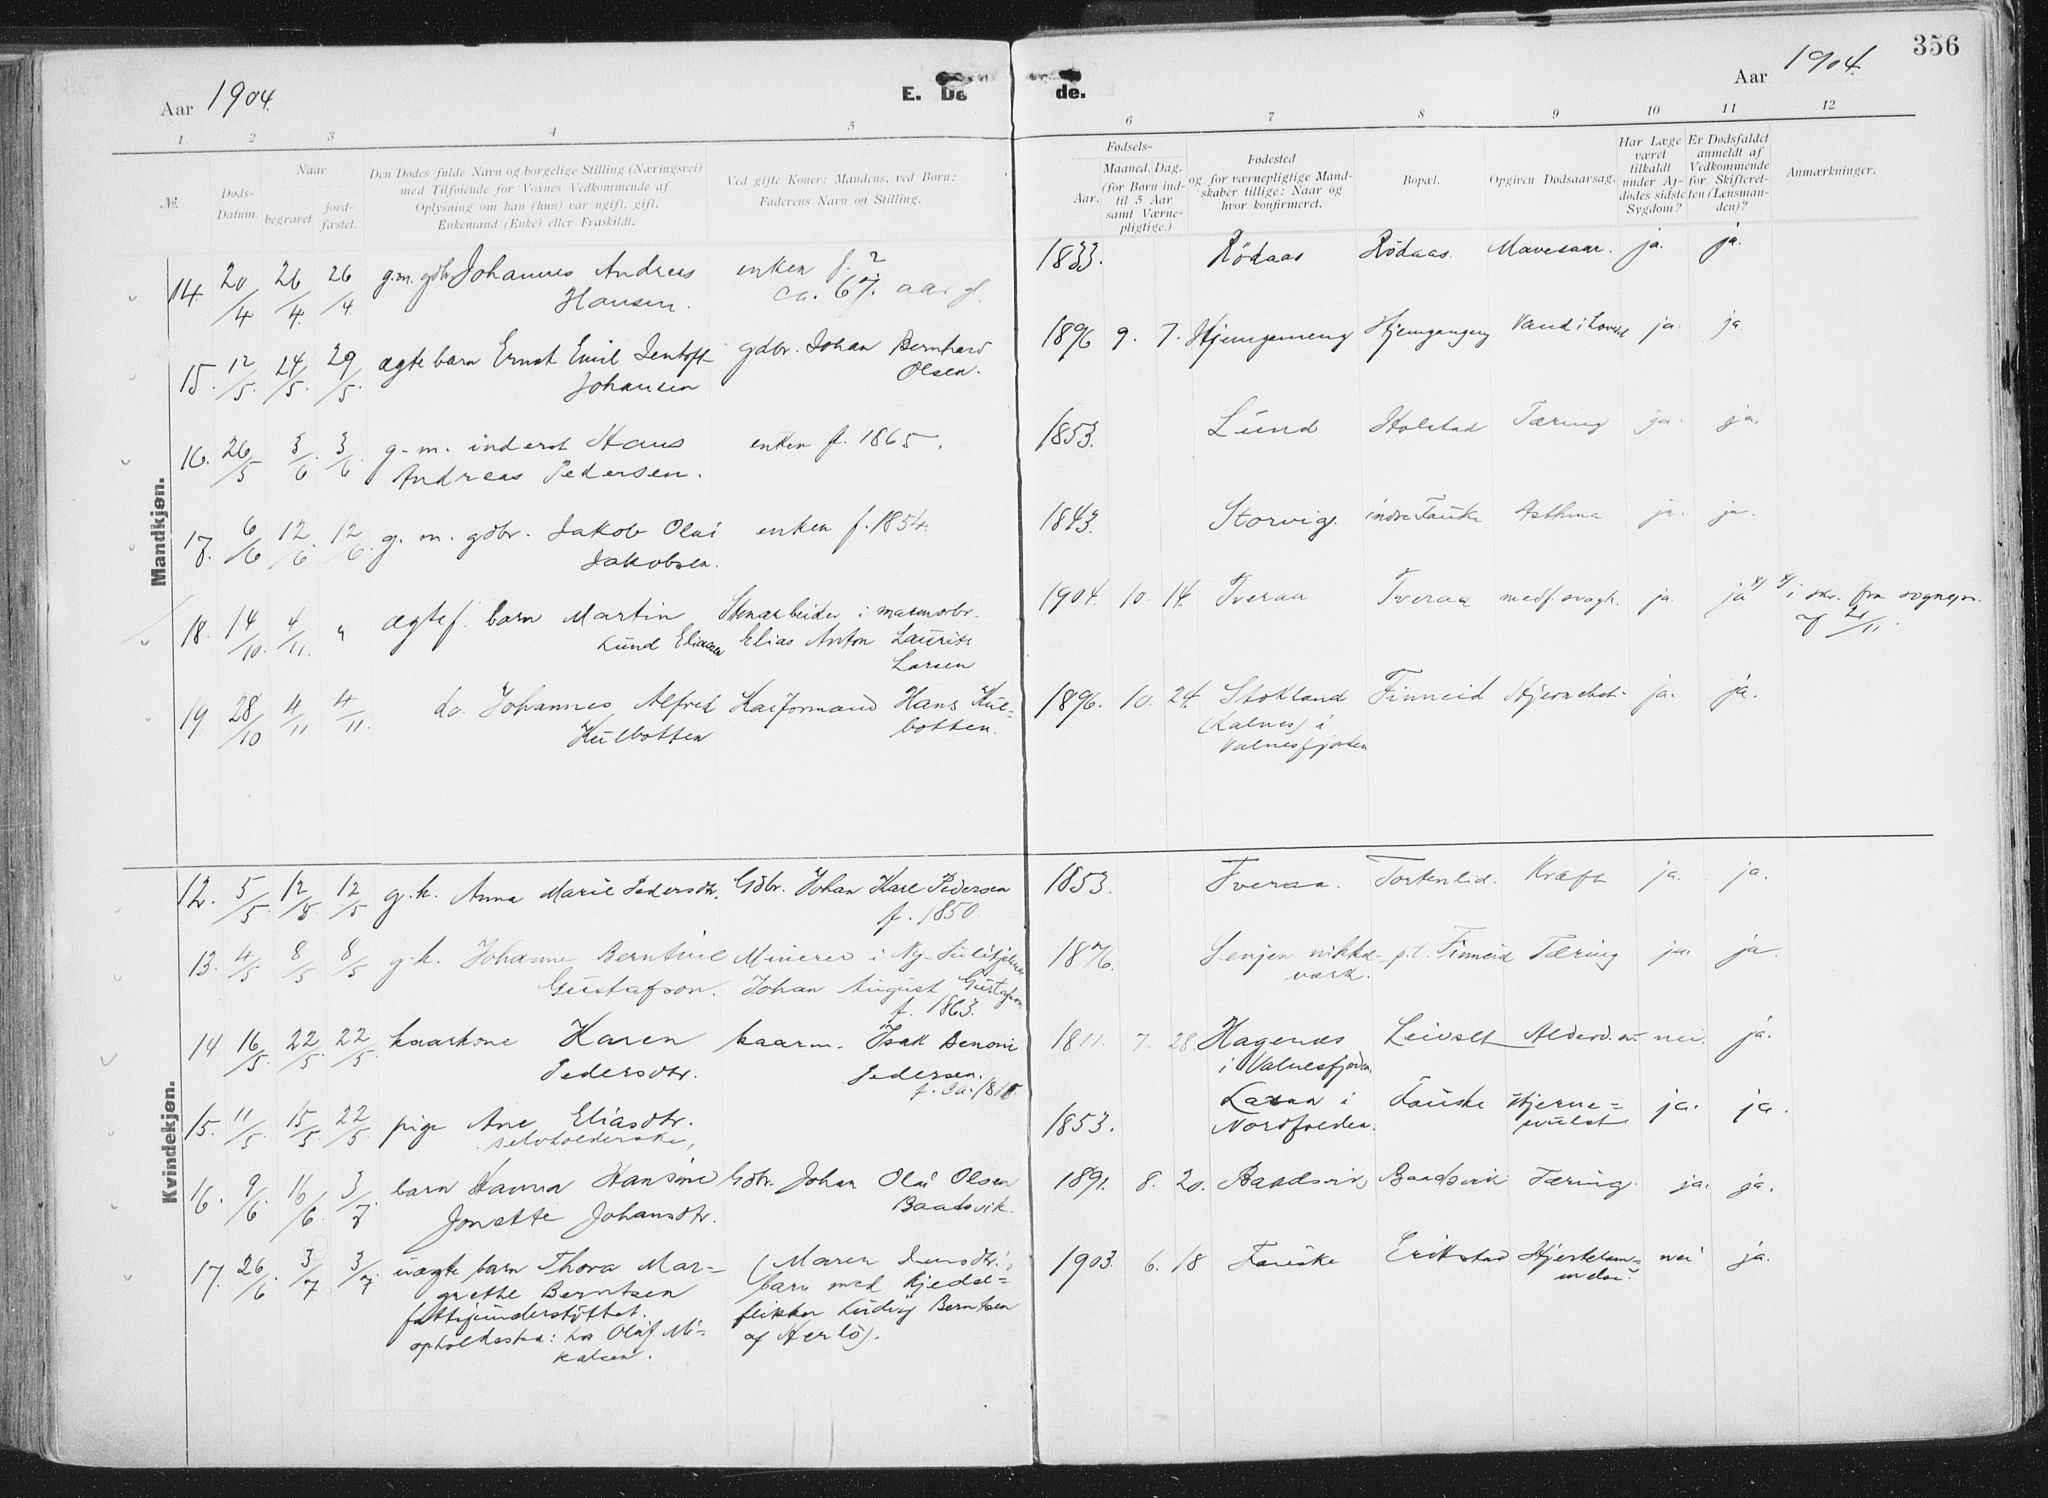 356
Aar 1904.
E. Dø de.
Aar 1904.
1. 2 3 4 5 6 7 8 9 10 11 12
No.
Døds-Datum.
Naar
begravet
jord-fæstet.
Den Dødes fulde Navn og borgelige Stilling (Næringsvei)
med Tilføiende for Voxnes Vedkommende af
Oplysning om han (hun) var ugift, gift,
Enkemand (Enke) eller Fraskildt.
Ved gifte Koner: Mandens, ved Børn:
Faderens Navn og Stilling.
Fødsels-
Aar.
Maaned. Dag.
(for Børn ind-
til 5 Aar
samt Værne-
pligtige.)
Fødested
og for værnepligtige Mand-
skaber tillige: Naar og
hvor konfirmeret.
Bopæl.
Opgiven Dødsaarsag.
Har Læge
været
tilkaldt
under Af-
dødes sidste
Sygdom?
Er Dødsfaldet
anmeldt af
Vedkommende
for Skifteret-
ten (Lensman-
den)?
Anmærkninger.
Mandkjøn.
14 20/4 26/4 26/4 g.m. gdbr. Johannes Andreas enken f. ? 1833. Rödaas Rödaas. Mavesaar. ja. ja.
Hansen. ca. 67. aar gl.
15. 12/5. 24/5. 29/5. ægte barn Ernst Emil Jentoft gdbr. Johan Bernhard 1896 9. 7. ja. ja.
Johansen Olsen.
16. 26/5 3/6. 3/6. g. m. inderst Hans enken f. 1865. 1853. Lund Holstad Tæring ja. ja.
Andreas Pedersen.
17. 6/6 12/6. 12/6. g. m. gdbr. Jakob Olai enken f. 1854. 1843. Storvig. indre Fauske Asthma ja. ja.
Jakobsen.
18. 14/10. 4/11. " ægtef. barn Martin Stenarbeider i marmorbr. 1904. 10. 14. Tveraa Tveraa medf. svagh. ja. ja
Lund Eliassen Elias Anton Laurits af 2/11.
Larsen
19 28/10 4/11 4/11. do. Johannes Alfred Kaiformand Hans Kul- 1896. 10. 24. Stokland Finneid ja. ja.
Kulbotten botten. (Kalnes) i
Valnesfjorden
Kvindekjøn.
12. 5/5. 12/5 12/5 g.k. Anna Marie Pedersdtr. Gdbr. Johan Karl Pedersen 1853. Tveraa. Tortenlid. Kræft ja. ja.
f. 1850.
13. 4/5 8/5 8/5 g.k. Johanne Berntine Minerer i Ny-Sulitjelma 1876. Senjen nikkel- p.t. Finneid Tæring ja. ja
Gustafson. Johan August Gustafson værk.
f. 1863.
14 16/5. 22/5. 22/5. kaarkone Karen kaarm. Isak Benoni 1811. 7. 28. Hagenæs Leivset nei. ja.
Pedersdtr. Pedersen. i Valnesfjorden
f. ca. 1815
15. 11/5. 15/5. 22/5. pige Ane Eliasdtr. 1853. i Fauske Hjerne- ja. ja.
selvholderske, Nordfolden. svulst
16. 9/6. 16/6 3/7. barn Hanna Hansine Gdbr. Johan Olai Olsen 1891. 8. 20. Baadsvik Baadsvik Tæring. ja. ja.
Jonette Johansdtr. Baadsvik.
17. 26/6 3/7 3/7. uægte barn Thora Mar- (Maren Jensdtr. 1903. 6. 18 Fauske Erikstad nei ja.
grethe Berntsen barn med Kjedel-
fattigunderstøttet. flikker Ludvig Berntsen
opholdssted: hos Olaf Mi- af Herlö).
kalsen.